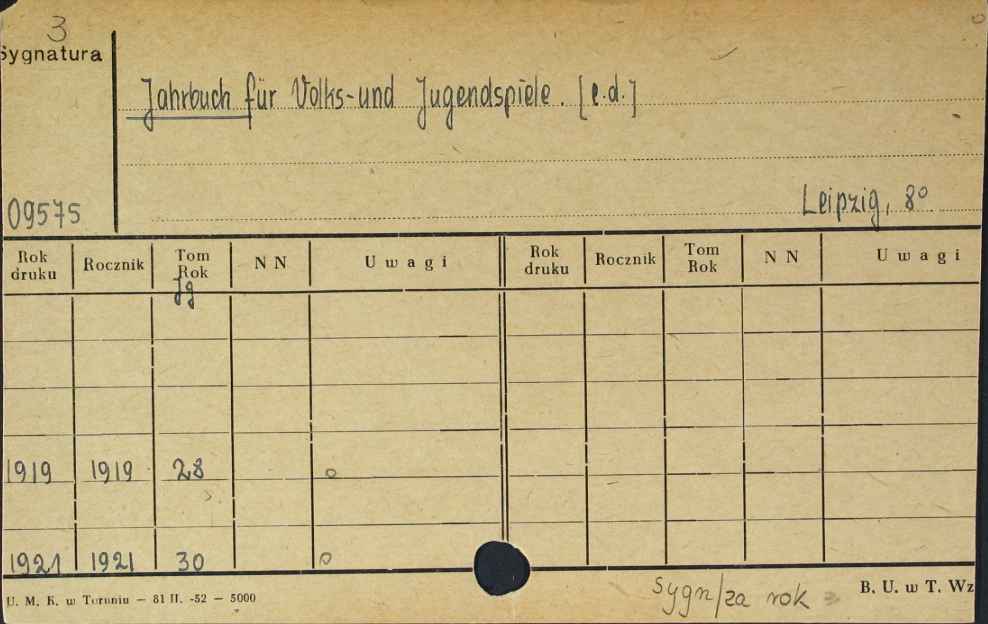 3
Sygnatura
Jahrbuch für Volks-und Jugendspiele. [e.d.]
09575
Leipzig, 8°
Rok druku Rocznik Tom Rok N N Uwagi Rok druku Rocznik Tom Rok N N Uwagi
Jg
1919 1919 28 o
1921 1921 30 o
U. M. K. w Toruniu — 81 II. -52 — 5000
Sygn/za rok
B. U. w T. Wz